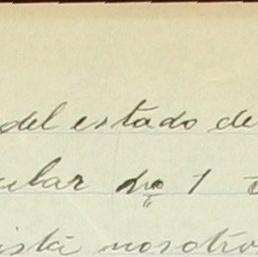 del estado de
ular No 1
ista nosotro